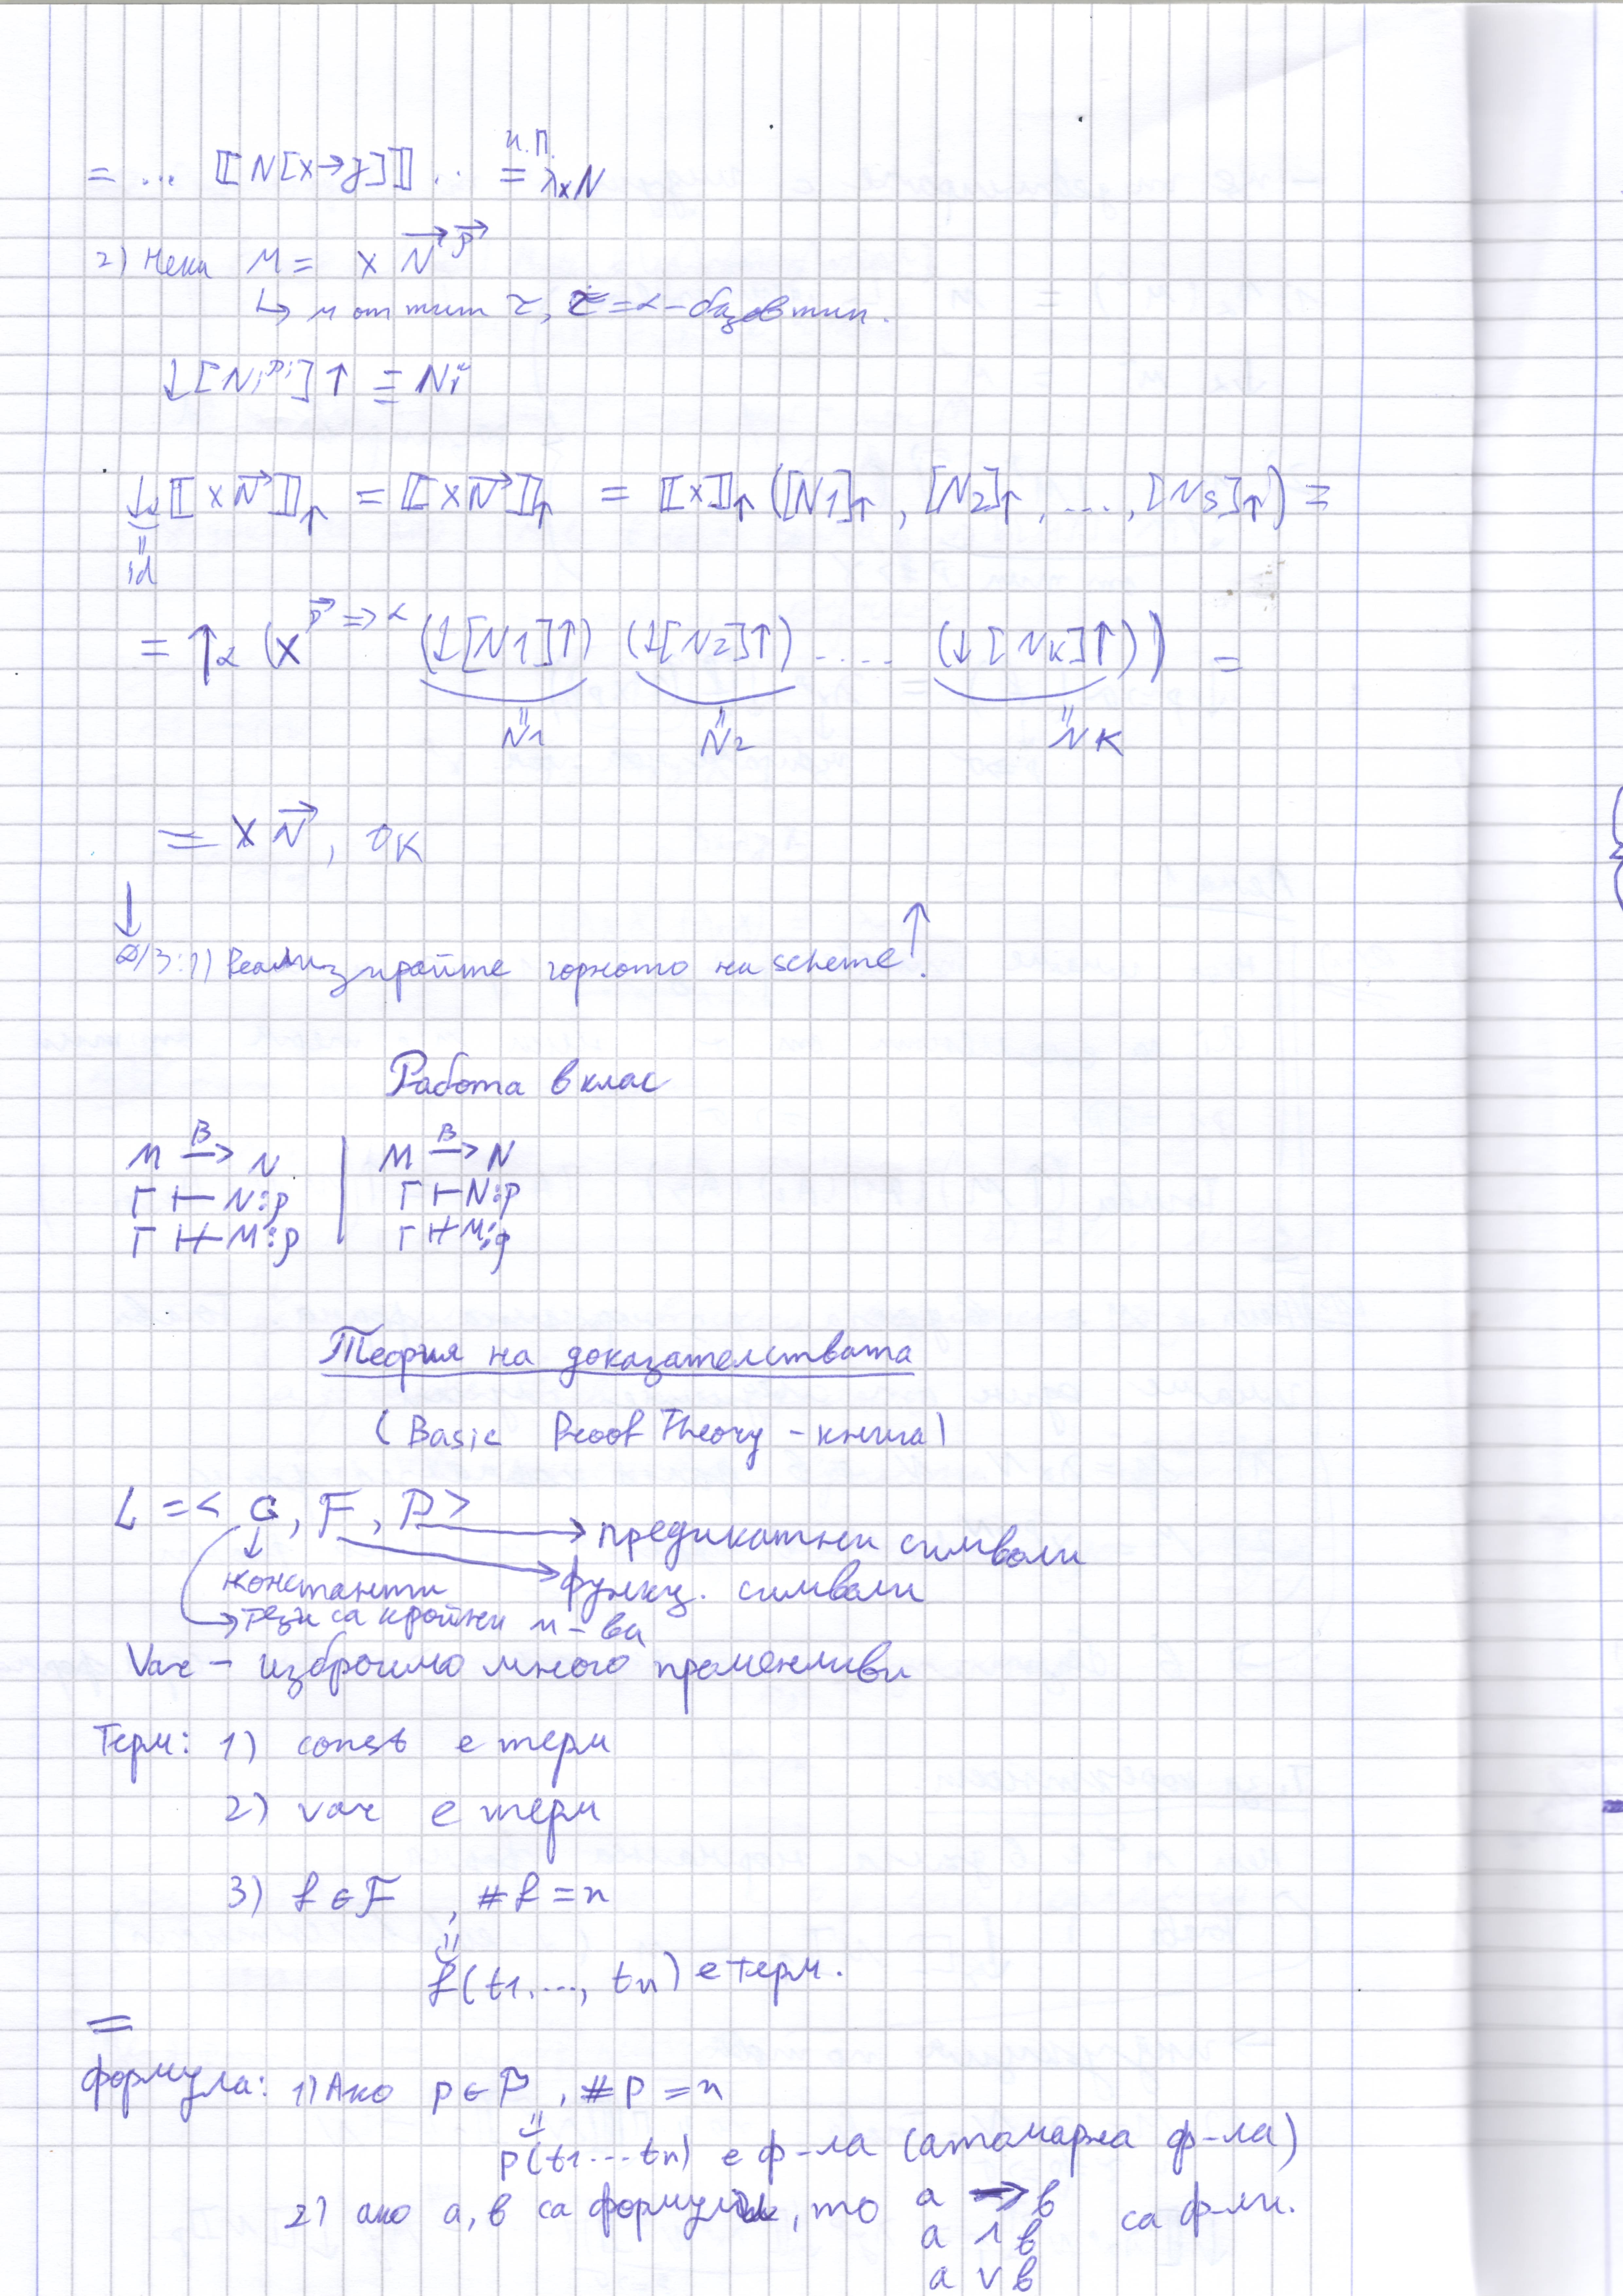 = ... ⟦N[x→y]⟧ .. =^{и.п.} λxN
2) Нека M = x N⃗^{ρ⃗}
↳ M от тип τ, τ = α – базов тип.
↓[Ni^{ρi}]↑ ≡ Ni
↓α ⟦x N⃗⟧↑ = ⟦x N⃗⟧↑ = ⟦x⟧↑ ([N1]↑, [N2]↑, ..., [Ns]↑) =
id
= ↑α (x^{ρ⃗ => α} (↓[N1]↑) (↓[N2]↑) ..... (↓[Nk]↑)) =
N1 N2 Nk
= x N⃗, ок
↓ ↑
Д/З: 1) Реализирайте горното на scheme.
Работа в клас
M →^β N | M →^β N
Γ ⊢ N:ρ | Γ ⊢ N:ρ
Γ ⊬ M:ρ | Γ ⊬ M:ρ
Теория на доказателствата
(Basic Proof Theory – книга)
L = < C, F, P > → предикатни символи
константи → функц. символи
→ тези са крайни м-ва
Var – изброимо много променливи
Терм: 1) const е терм
2) var е терм
3) f ∈ F, #f = n
⇓
f(t1, ..., tn) е терм.
=
формула: 1) Ако p ∈ P, #p = n
⇓
p(t1...tn) е ф-ла (атомарна ф-ла)
2) ако a, b са формули, то a → b са ф-ли.
a ∧ b
a ∨ b